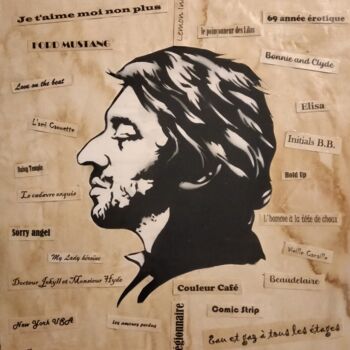 Je t'aime moi non plus
FORD MUSTANG
Love on the beat
L'ami Caouette
Le cadavre exquis
Sorry angel
My Lady héroïne
Docteur Jekyll et Monsieur Hyde
New York USA
Les amours perdus
Lemon In
le poinconneur des Lilas
69 année érotique
Bonnie and Clyde
Elisa
Initials B.B.
Hold Up
L'homme à la tête de choux
Vieille Canaille
Beaudelaire
Couleur Café
Comic Strip
Eau et gaz à tous les étages
égionnaire